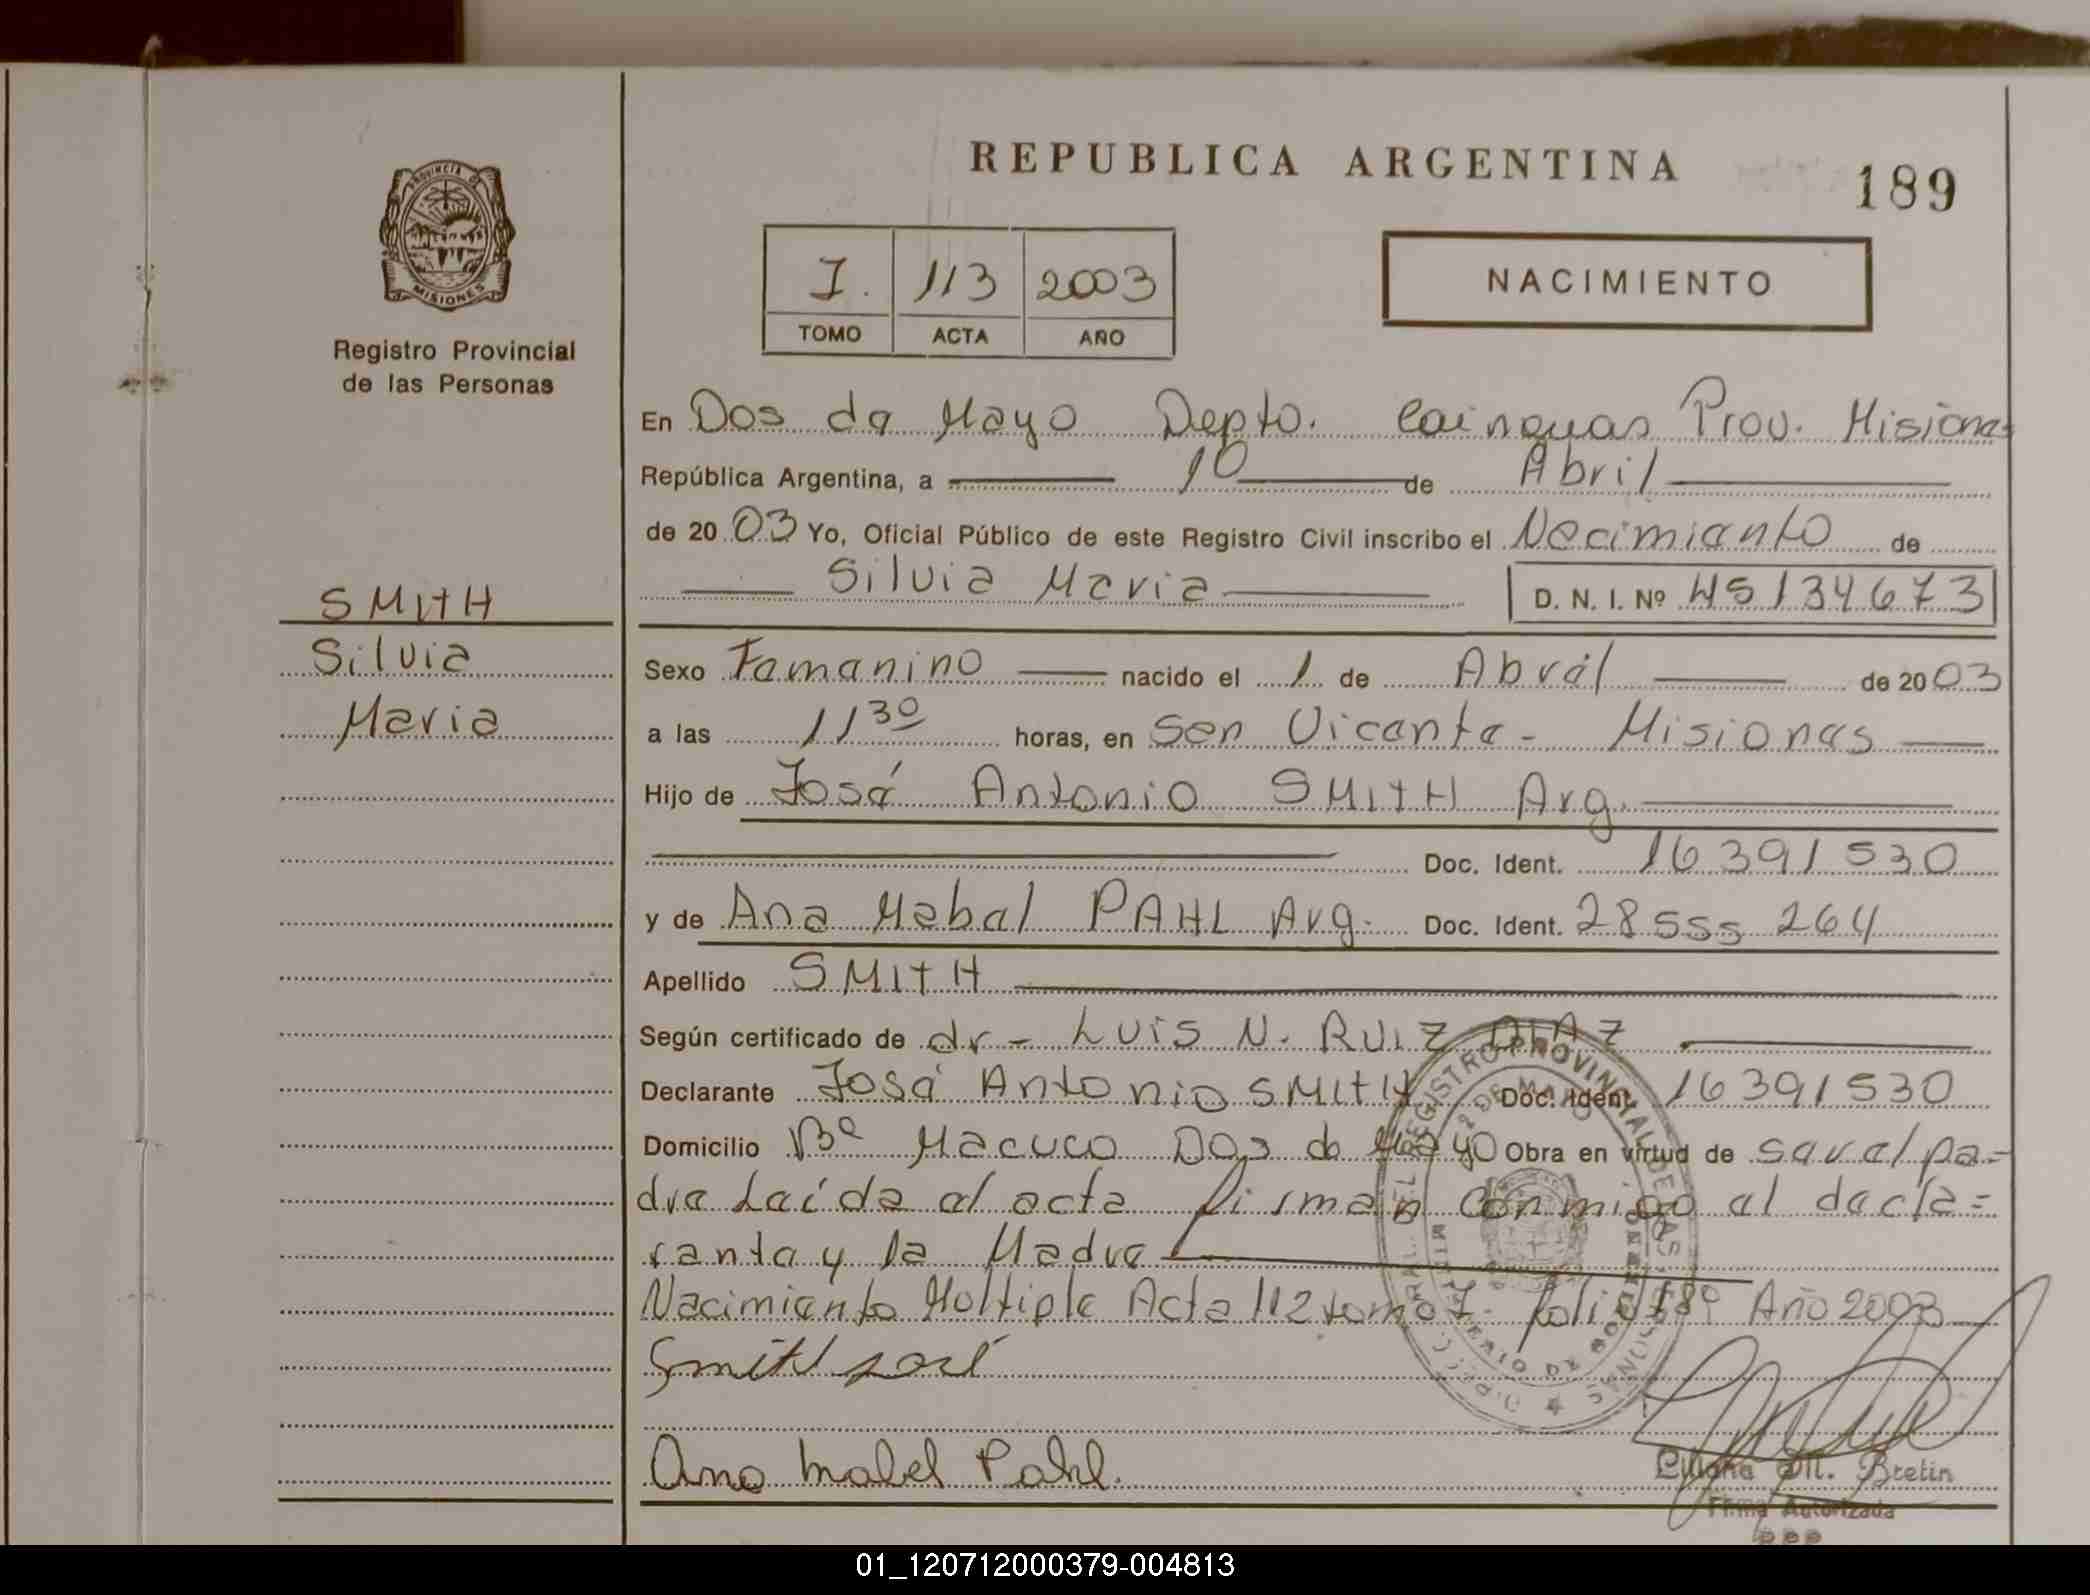 REPUBLICA ARGENTINA
189
PROVINCIA DE
MISIONES
Registro Provincial
de las Personas
I. 113 2003
TOMO ACTA AÑO
NACIMIENTO
En Dos de Mayo Depto. Cainguas Prov. Misiones
República Argentina, a 10 de Abril
de 2003 Yo, Oficial Público de este Registro Civil inscribo el Nacimiento de
Silvia Maria D. N. I. Nº 45134673
SMITH
Silvia
Maria
Sexo Femenino nacido el 1 de Abril de 2003
a las 11 30 horas, en San Vicente - Misiones
Hijo de José Antonio SMITH Arg.
Doc. Ident. 16391530
y de Ana Mabel PAHL Arg. Doc. Ident. 28555264
Apellido SMITH
Según certificado de dr - Luis N. RUIZ DIAZ
Declarante José Antonio SMITH Doc. Ident. 16391530
Domicilio Bº Macuco Dos de Mayo Obra en virtud de ser el pa=
dre Leída el acta firman conmigo el decla=
rante y la Madre
Nacimiento Multiple Acta 112 tomo I - folio Año 2003
Smith José
Ana Mabel Pahl.
Liliana M. Bretin
Firma Autorizada
RPP
01_120712000379-004813